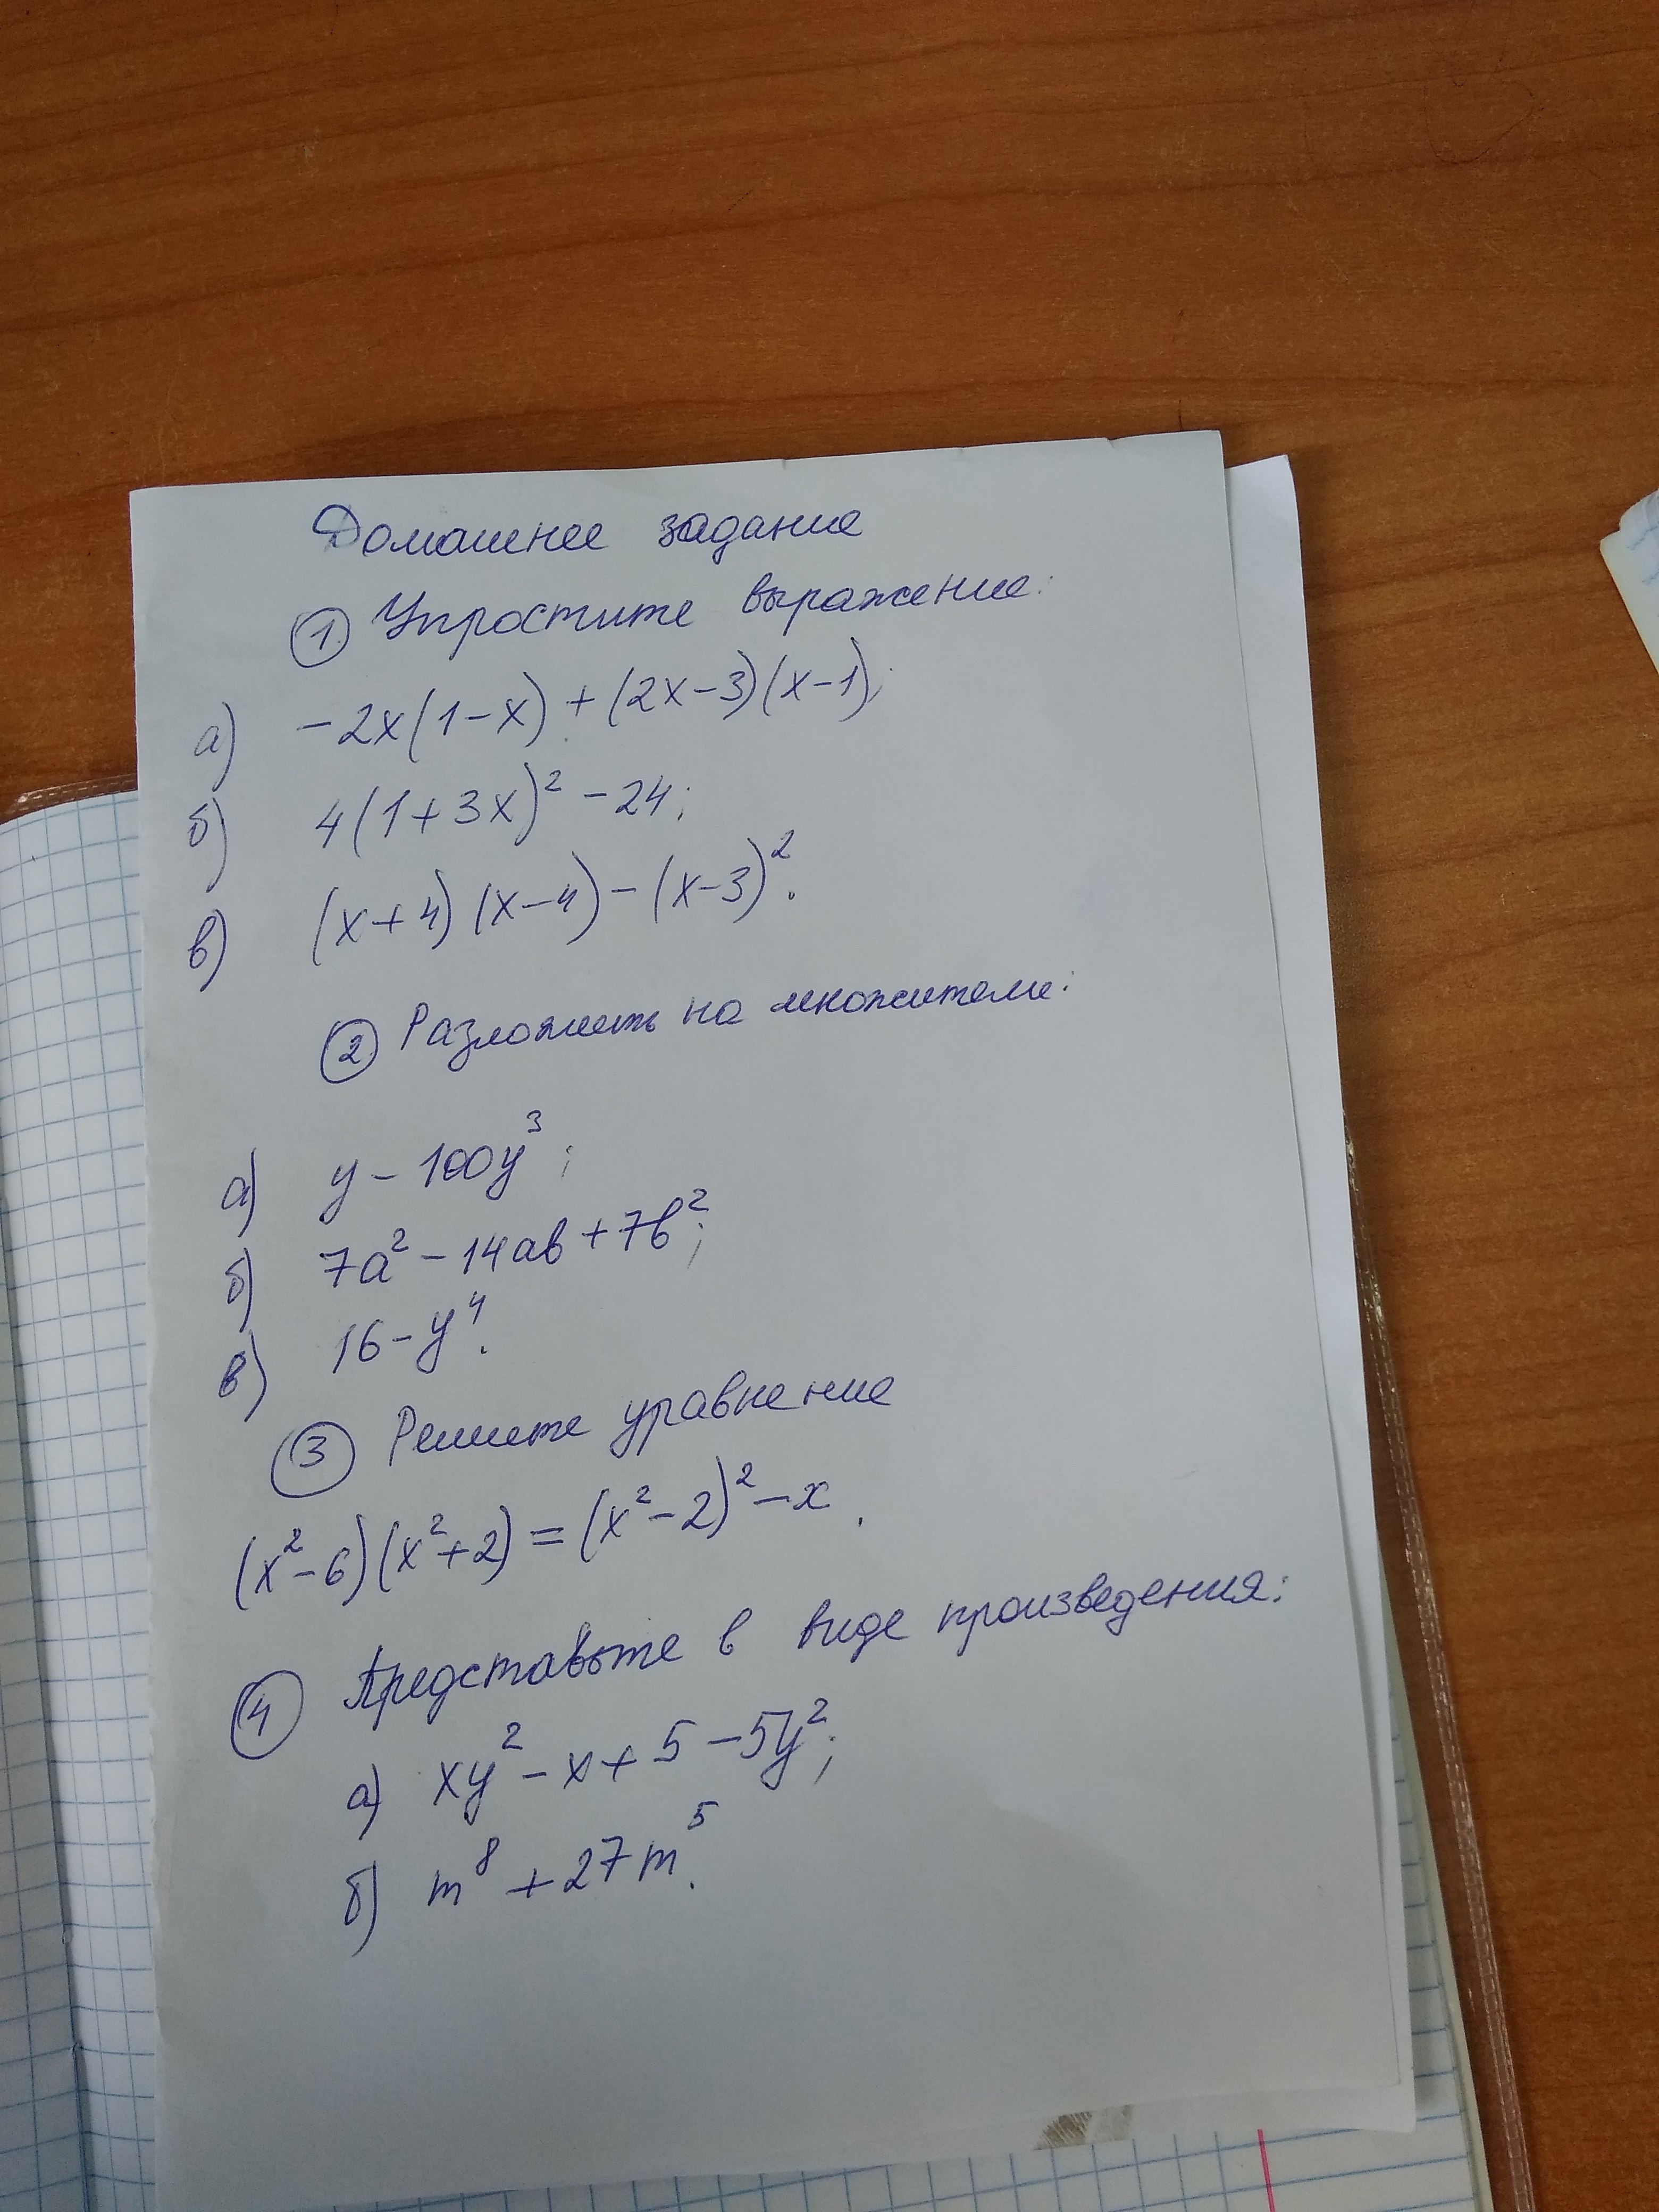 Домашнее задание
① Упростите выражение:
а) -2x(1-x)+(2x-3)(x-1);
б) 4(1+3x)²-24;
в) (x+4)(x-4)-(x-3)².
② Разложить на множители:
а) y-100y³;
б) 7a²-14ab+7b²;
в) 16-y⁴.
③ Решите уравнение
(x²-6)(x²+2)=(x²-2)²-x.
④ Представьте в виде произведения:
а) xy²-x+5-5y²;
б) m⁸+27m⁵.